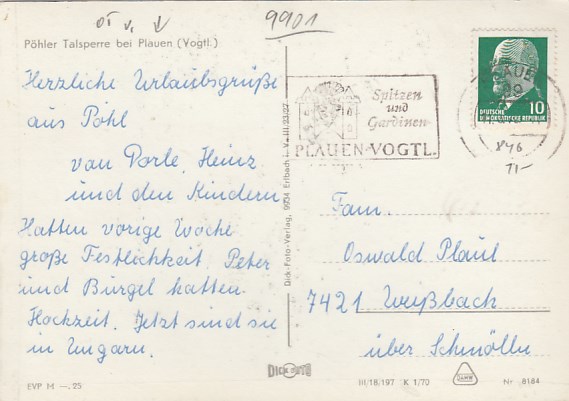 9901
Pöhler Talsperre bei Plauen (Vogtl.)
Herzliche Urlaubsgrüße
aus Pöhl
von Porle, Heinz
und den Kindern
Hatten vorige Woche
große Festlichkeit. Peter
und Bürgel hatten
Hochzeit. Jetzt sind sie
in Ungarn.
EVP M —.25
Dick-Foto-Verlag, 9934 Erlbach i. V. III/23/27
DICK FOTO
Spitzen
und
Gardinen
PLAUEN-VOGTL.
10
DEUTSCHE
DEMOKRATISCHE REPUBLIK
846
Fam.
Oswald Plaul
7421 Weyßbach
über Schmölln
III/18/197 K 1/70
Nr 8184